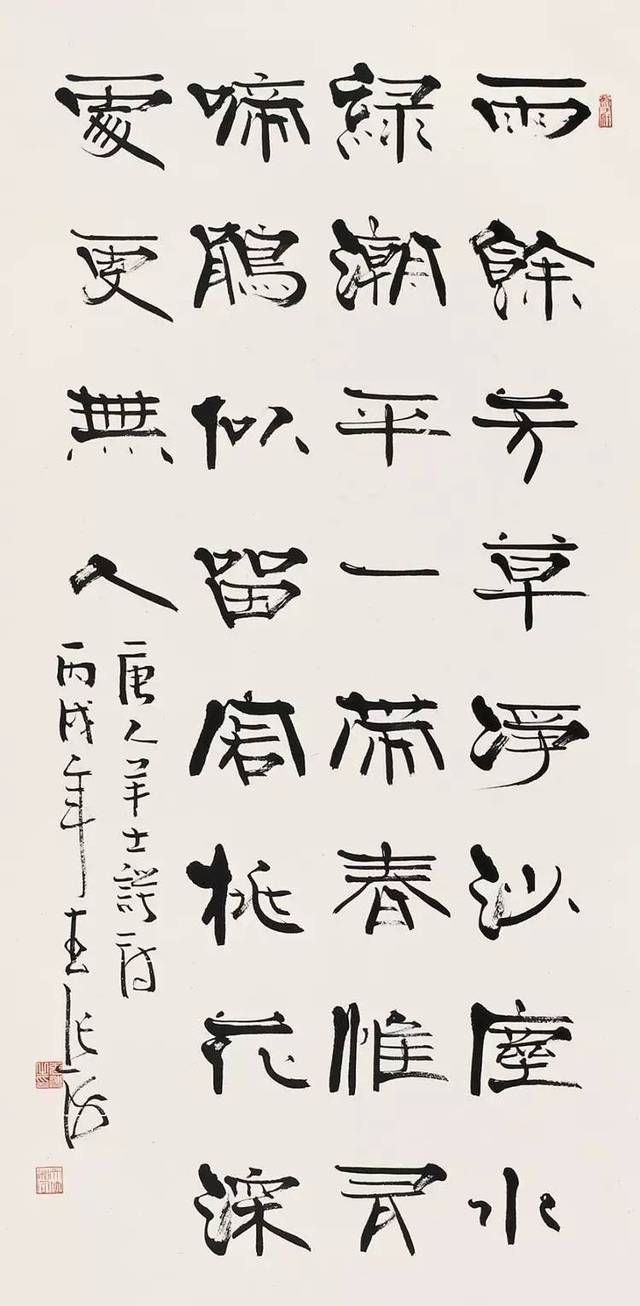 雨餘芳草淨沙塵水
綠潮平一帶春惟有
啼鵑似留客桃花深
處更無人
唐人羊士諤詩
丙戌年春張海